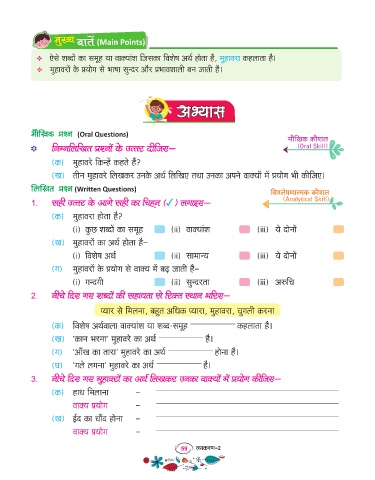 मुख्य बातें (Main Points)
❖ ऐसे शब्दों का समूह या वाक्यांश जिसका विशेष अर्थ होता हैं, मुहावरा कहलाता है।
❖ मुहावरों के प्रयोग से भाषा सुन्दर और प्रभावशाली बन जाती हैं।
अभ्यास
मौखिक प्रश्न (Oral Questions)
मौखिक कौशल
(Oral Skill)
निम्नलिखित प्रश्नों के उत्तर दीजिए–
(क) मुहावरे किन्हें कहते हैं?
(ख) तीन मुहावरे लिखकर उनके अर्थ लिखिए तथा उनका अपने वाक्यों में प्रयोग भी कीजिए।
लिखित प्रश्न (Written Questions)
विश्लेषणात्मक कौशल
(Analytical Skill)
1. सही उत्तर के आगे सही का चिह्न (✓) लगाइए–
(क) मुहावरा होता है?
(i) कुछ शब्दों का समूह (ii) वाक्यांश (iii) ये दोनों
(ख) मुहावरों का अर्थ होता है–
(i) विशेष अर्थ (ii) सामान्य (iii) ये दोनों
(ग) मुहावरों के प्रयोग से वाक्य में बढ़ जाती हैं–
(i) गन्दगी (ii) सुन्दरता (iii) अरुचि
2. नीचे दिए गए शब्दों की सहायता से रिक्त स्थान भरिए–
प्यार से मिलना, बहुत अधिक प्यारा, मुहावरा, चुगली करना
(क) विशेष अर्थवाला वाक्यांश या शब्द-समूह ________ कहलाता हैं।
(ख) 'कान भरना' मुहावरे का अर्थ ________ है।
(ग) 'आँख का तारा' मुहावरे का अर्थ ________ होना हैं।
(घ) 'गले लगना' मुहावरे का अर्थ ________ है।
3. नीचे दिए गए मुहावरों का अर्थ लिखकर उनका वाक्यों में प्रयोग कीजिए–
(क) हाथ मिलाना –
वाक्य प्रयोग –
(ख) ईद का चाँद होना –
वाक्य प्रयोग –
59 व्याकरण–2